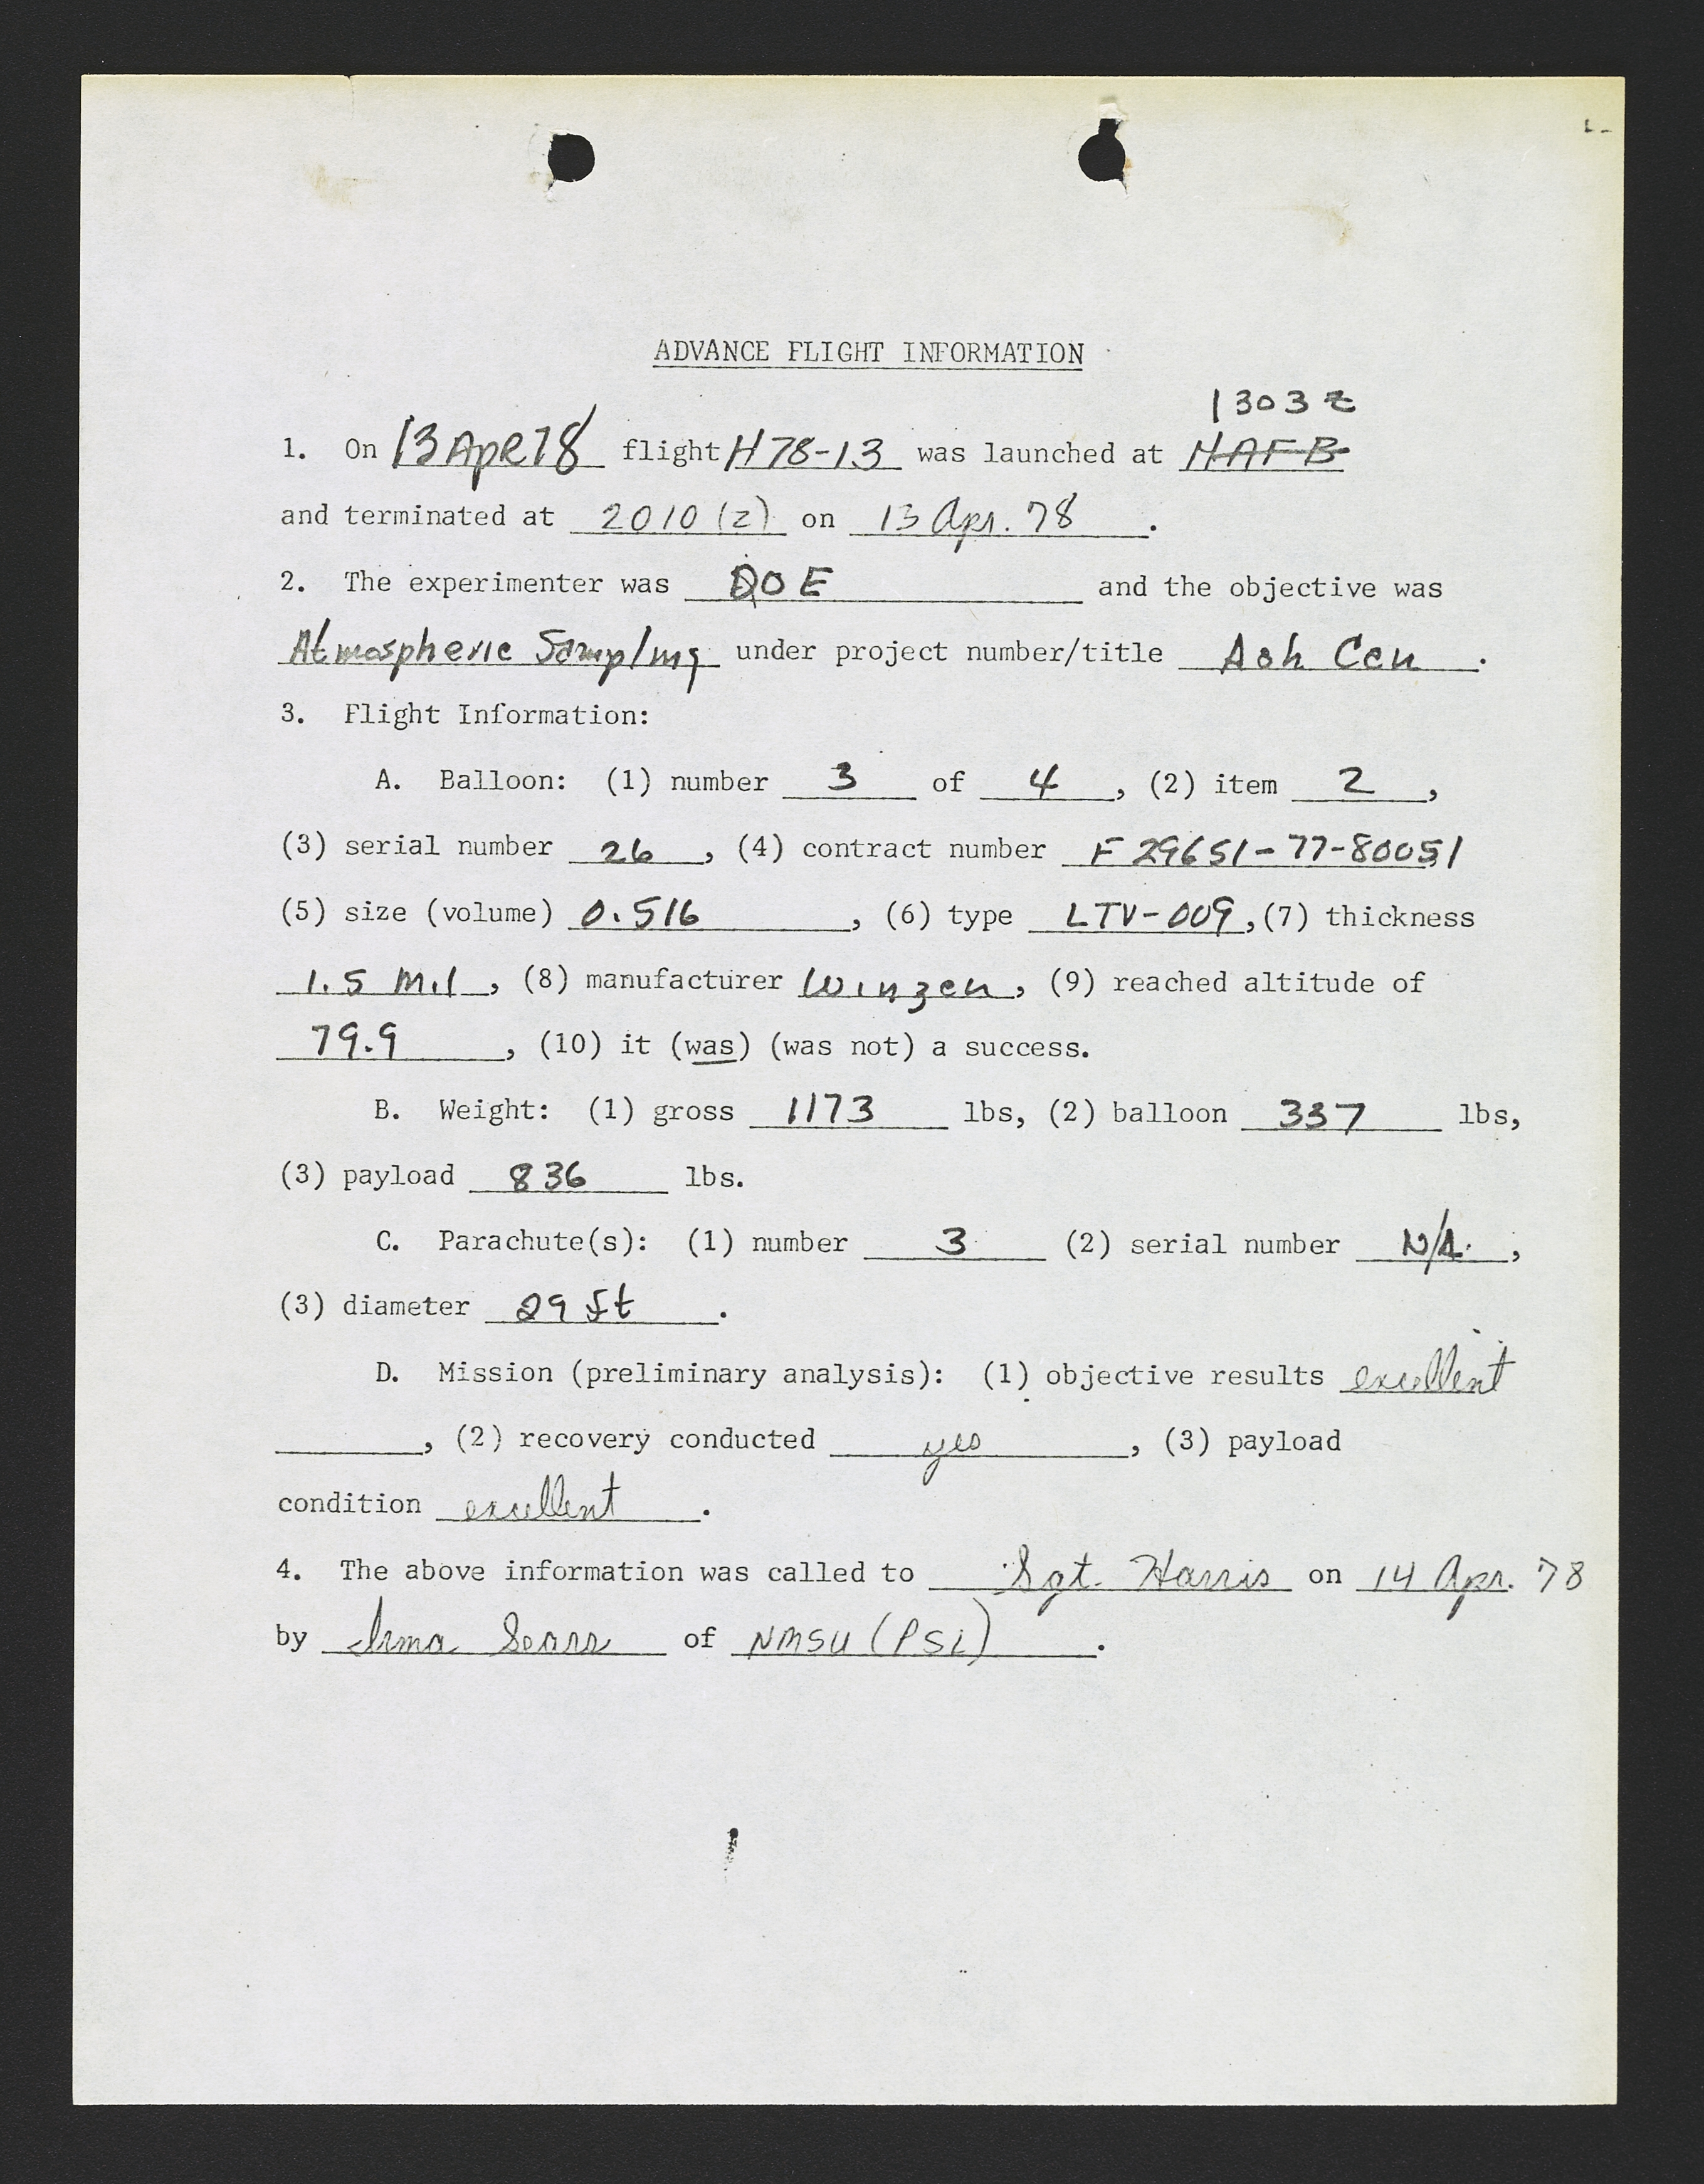 ADVANCE FLIGHT INFORMATION
1303 Z
1. On 13 Apr 78 flight H78-13 was launched at HAFB
and terminated at 2010 (z) on 13 Apr. 78 .
2. The experimenter was DOE and the objective was
Atmospheric Sampling under project number/title Ash Can .
3. Flight Information:
A. Balloon: (1) number 3 of 4 , (2) item 2 ,
(3) serial number 26 , (4) contract number F29651-77-80051
(5) size (volume) 0.516 , (6) type LTV-009 , (7) thickness
1.5 Mil , (8) manufacturer Winzen , (9) reached altitude of
79.9 , (10) it (was) (was not) a success.
B. Weight: (1) gross 1173 lbs, (2) balloon 337 lbs,
(3) payload 836 lbs.
C. Parachute(s): (1) number 3 (2) serial number N/A ,
(3) diameter 29 ft .
D. Mission (preliminary analysis): (1) objective results excellent
, (2) recovery conducted yes , (3) payload
condition excellent .
4. The above information was called to Sgt. Harris on 14 Apr. 78
by Irma Sears of NMSU (PSL) .